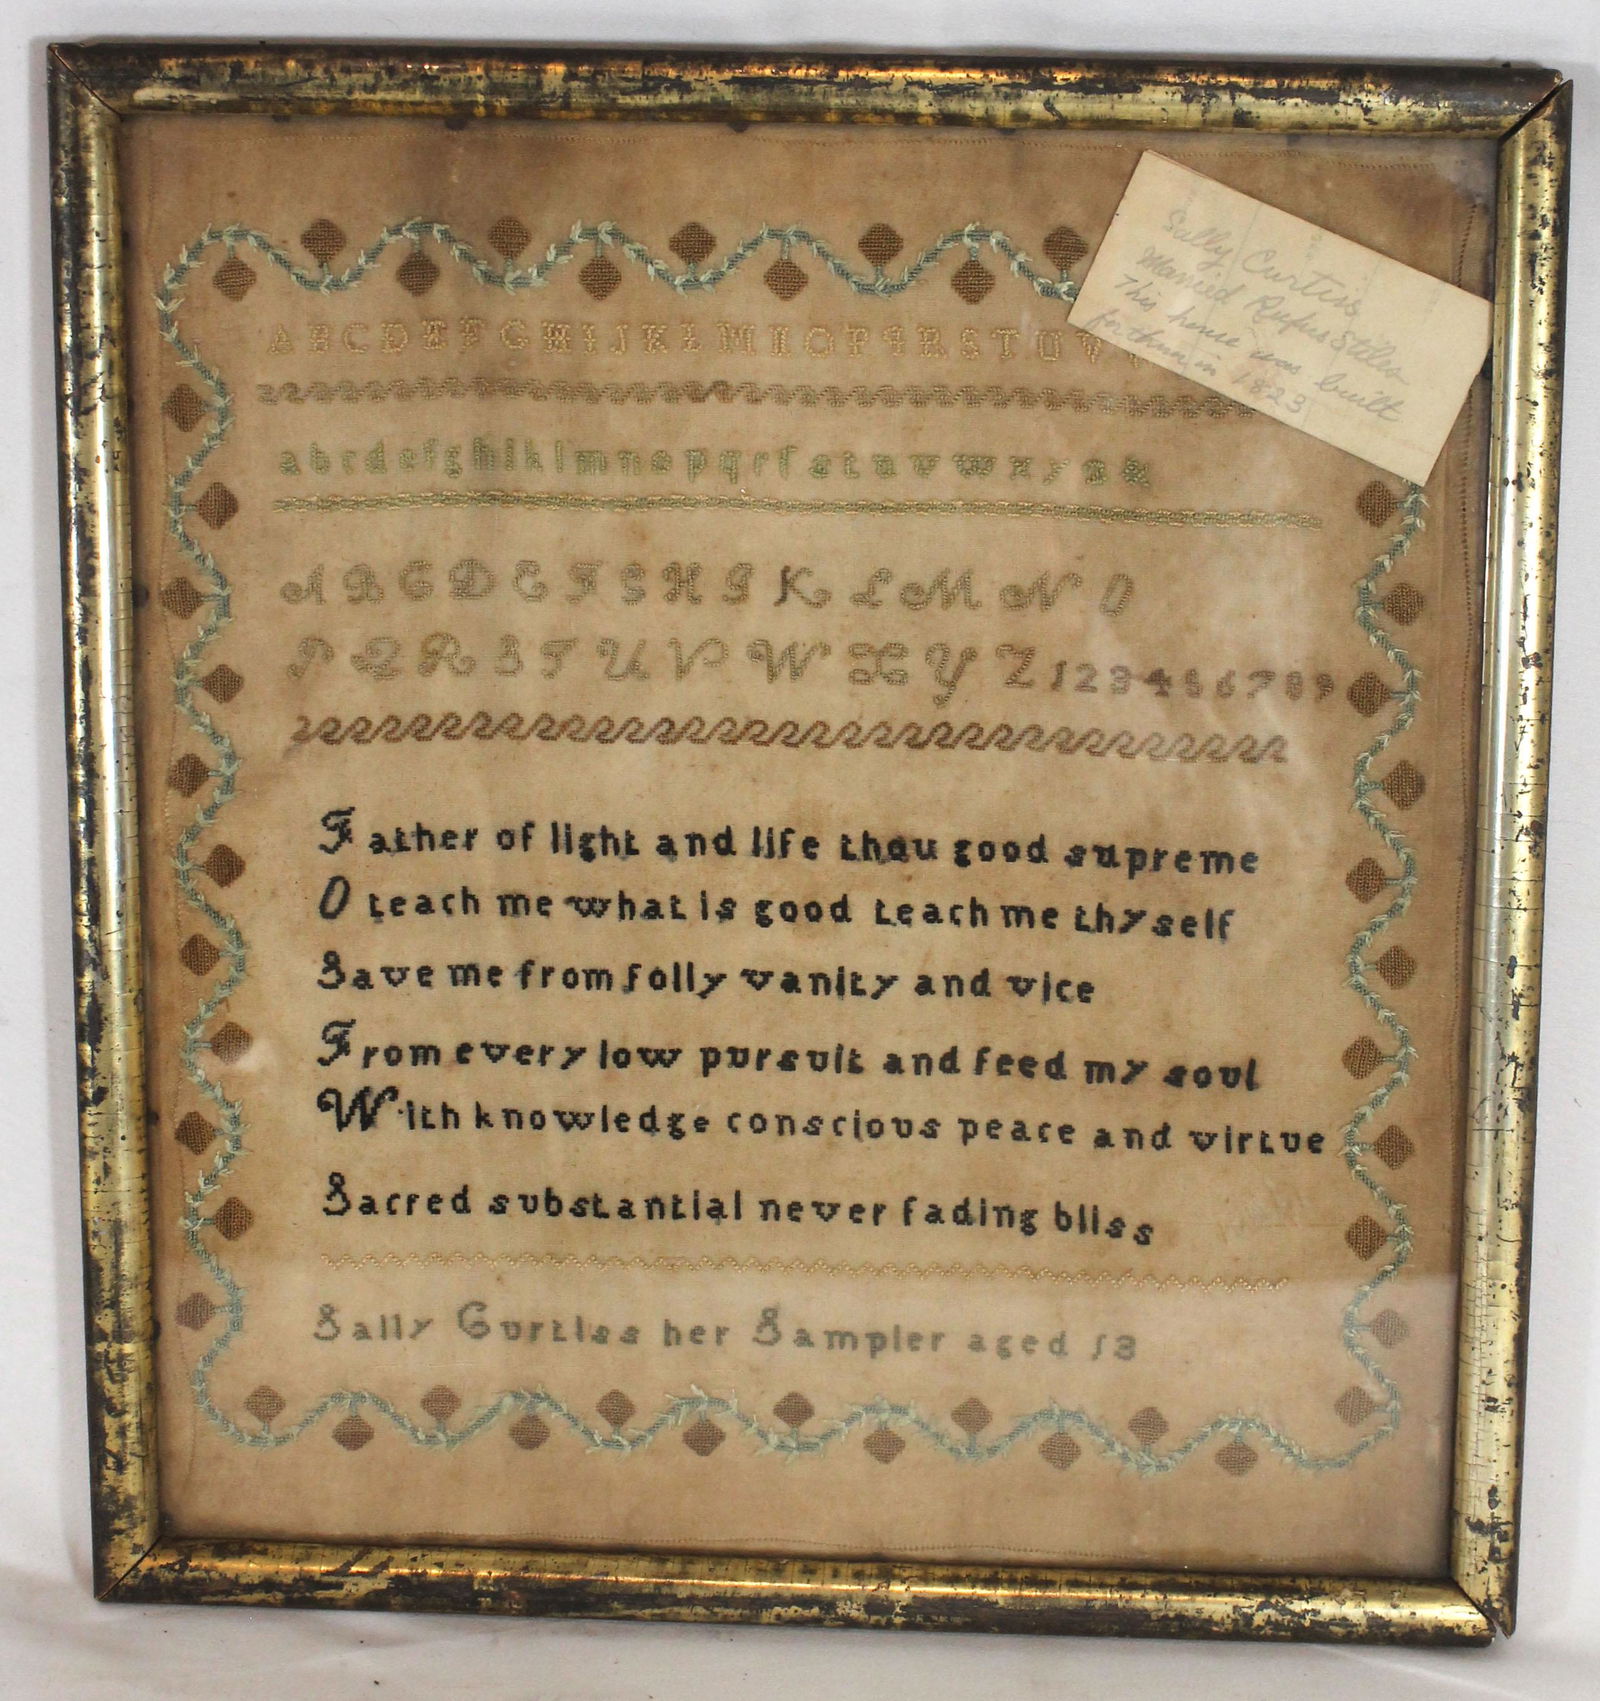 Sally Curtiss
Married Rufus Stiles
This house was built
for them in 1823
A B C D E F G H I J K L M N O P Q R S T U V
a b c d e f g h i k l m n o p q r ſ s t u v w x y z &
A B C D E F G H I K L M N O
P Q R S T U V W X Y Z 1 2 3 4 5 6 7 8 9
Father of light and life thou good supreme
O teach me what is good teach me thyself
Save me from folly vanity and vice
From every low pursuit and feed my soul
With knowledge conscious peace and virtue
Sacred substantial never fading bliss
Sally Curtiss her Sampler aged 13